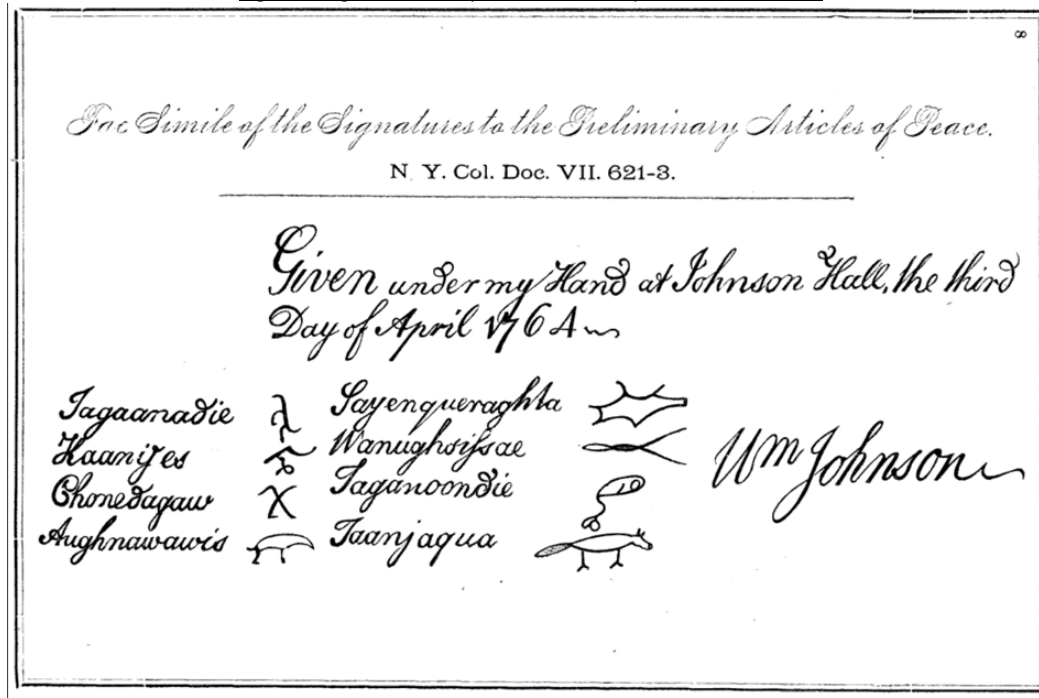 8
Fac Simile of the Signatures to the Preliminary Articles of Peace.
N. Y. Col. Doc. VII. 621-3.
Given under my Hand at Johnson Hall, the third
Day of April 1764
Tagaanadie
Kaanijes
Chonedagaw
Aughnawawis
Sayenqueraghta
Wanughsifsae
Taganoondie
Taanjaqua
Wm Johnson